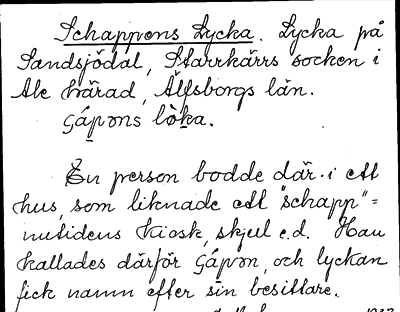 Schappens Lycka. Lycka på
Sandsjödal, Starrkärrs socken i
Ale härad, Älfsborgs län.
En person bodde där i ett
hus, som liknade ett "schapp"=
nutidens kiosk, skjul e.d. Han
kallades därför Gápən, och lyckan
fick namn efter sin besittare.